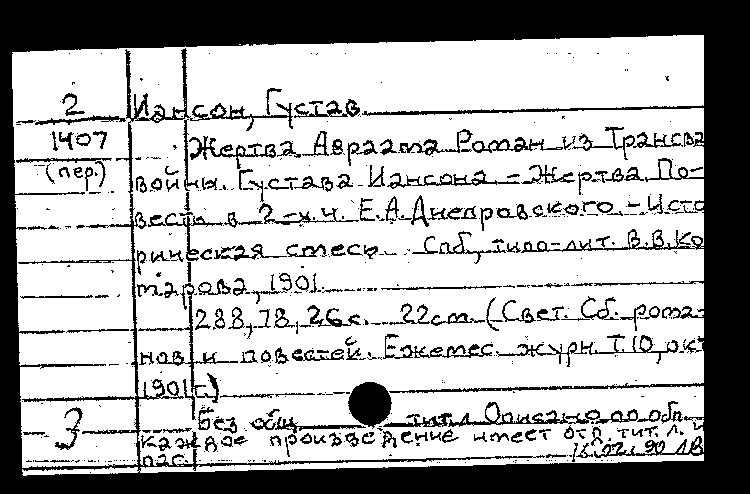 2 Иансон, Густав.
1407 Жертва Авраама Роман из Трансва
(пер.) войны. Густава Иансона - Жертва. По-
весть в 2-х ч. Е.А. Днепровского. - Исто
рическая смесь. Спб, типо-лит. В.В. Ко
марова, 1901.
288, 78, 26 с. 22 см. (Свет. Сб. рома-
нов и повестей. Ежемес. журн. Т.10, окт
1901 г.)
Без общ. тит.л Описано по обл.
3 каждое произведение имеет отд. тит. л. и
паг. 16.02.90 ЛВ